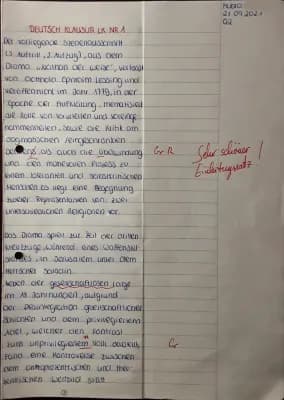 MGBIO
21.09.2021
Q2
DEUTSCH KLAUSUR LK NR.1
Der vorliegende Szenenausschnitt
(2. Aufzug), aus dem
Drama „Nathan der Weise“, verfasst
von Gotthold Ephraim Lessing und
veröffentlicht im Jahr 1779, in der
Epoche der Aufklärung, thematisiert
die Rolle von Vorurteilen und
sowie die Kritik am
dogmatischen
als auch die Überwindung
und den mühevollen Prozess zu
einem toleranten und
Menschen. Es liegt eine Begegnung
zweier Repräsentanten von zwei
unterschiedlichen Religionen vor.
Gr R
Sehr schöner
Einleitungssatz
!
Das Drama spielt zur Zeit der dritten
Kreuzzüge, während eines Waffenstill-
standes, in Jerusalem unter dem
Herrscher Saladin.
Neben der gesellschaftlichen Lage
im 18. Jahrhundert, aufgrund
der gesellschaftlicher
Schichten und dem privilegierten
Adel, welcher den Kontrast
zum unprivilegierten Volk
fand eine Kontroverse zwischen
dem und
Weltbild statt.
Gr